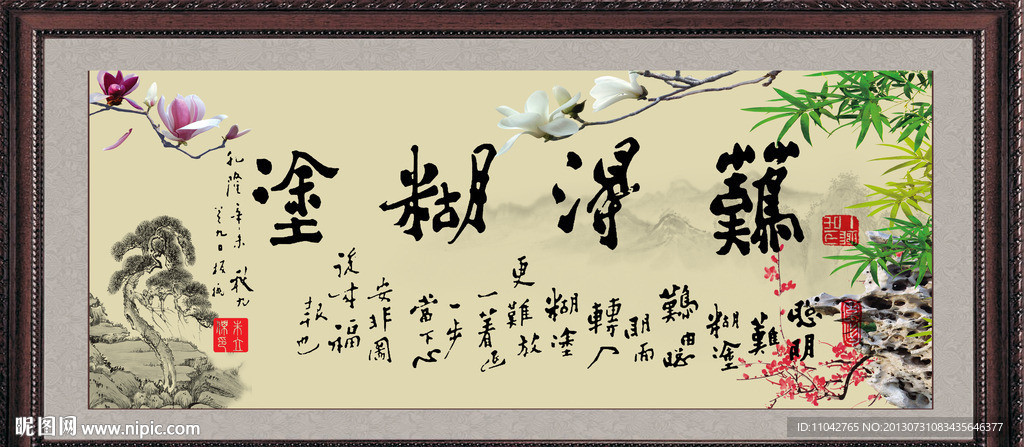 難得糊塗
聰明
難
糊塗
難由聰
明而
轉入
糊塗
更難放
一着退
一步
當下心
安非圖
後來福
報也
乾隆辛未
秋九
昵图网 www.nipic.com
ID:11042765 NO:20130731083435646377